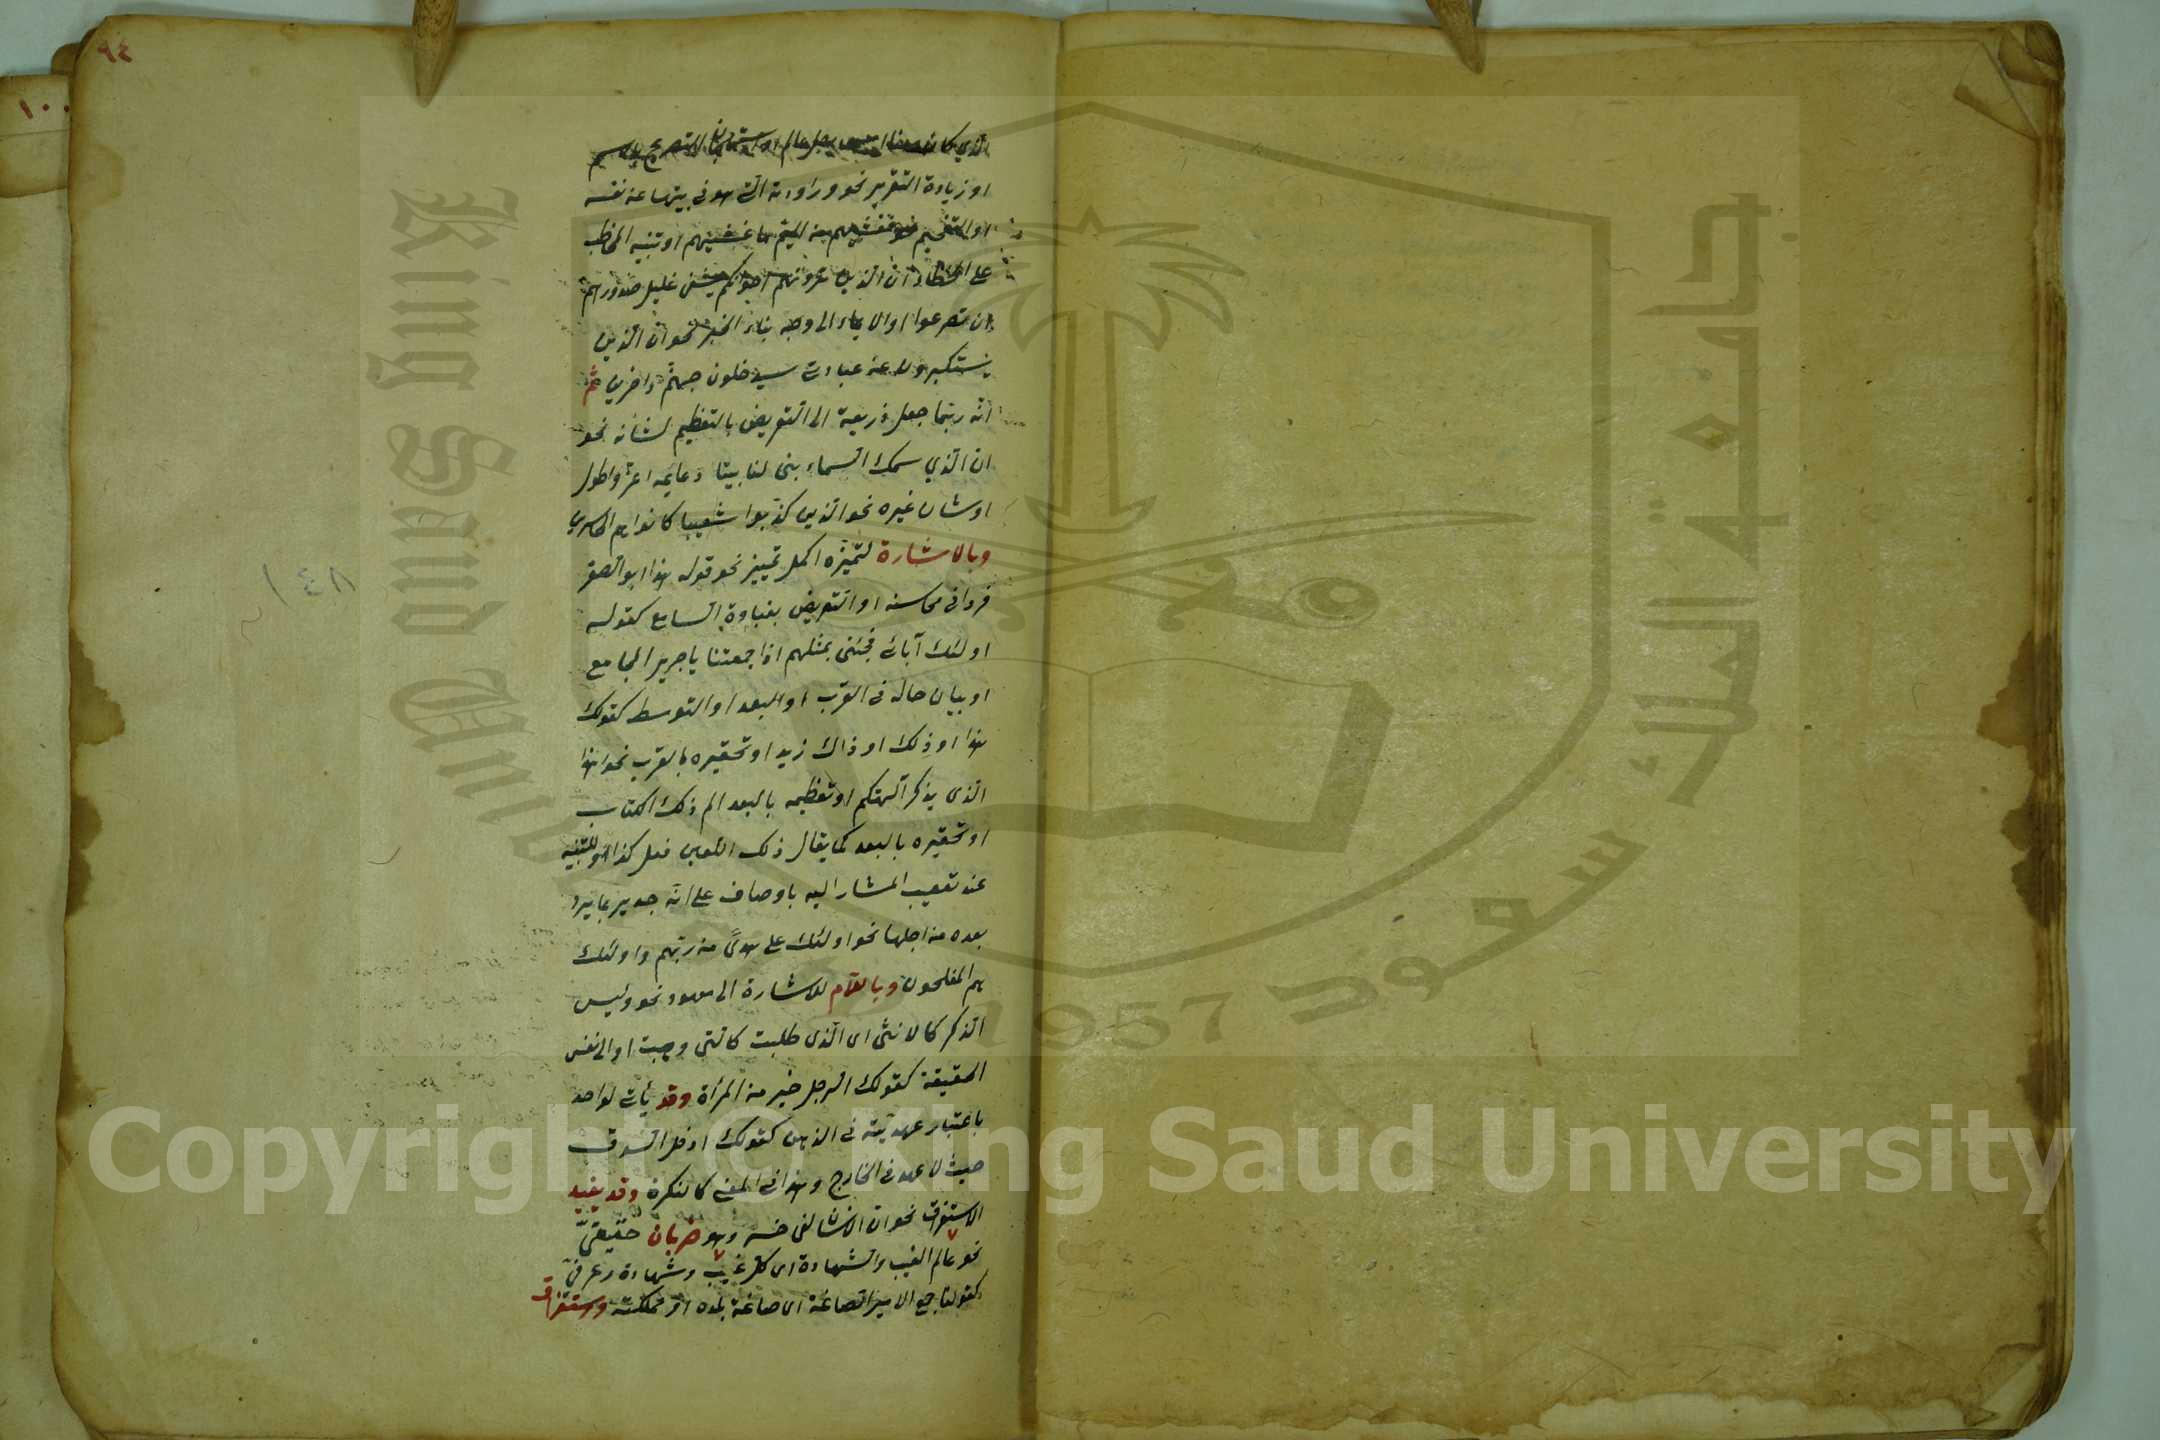 ٩٤
١٠٠
الذي كان معنا امس رجل عالم او استهجان التصريح بالاسم
او زيادة التقرير نحو وراودته التي هو في بيتها عن نفسه
او التفخيم نحو فغشيهم من اليم ما غشيهم او تنبيه المخاطب
على الخطاء ان الذين ترونهم اخوانكم يشفي غليل صدورهم
ان تصرعوا او الايماء الى وجه بناء الخبر نحو ان الذين
يستكبرون عن عبادتي سيدخلون جهنم داخرين ثم
انه ربما جعل ذريعة الى التعريض بالتعظيم لشانه نحو
ان الذي سمك السماء بنى لنا بيتا دعايمه اعز واطول
او شان غيره نحو الذين كذبوا شعيبا كانوا هم الخاسرين
وبالاشارة لتميزه اكمل تمييز نحو قوله هذا ابو الصقر
فردا في محاسنه او التعريض بغباوة السامع كقوله
اولئك آبائي فجئني بمثلهم اذا جمعتنا يا جرير المجامع
او بيان حاله في القرب او البعد او التوسط كقولك
هذا او ذلك او ذاك زيد او تحقيره بالقرب نحو اهذا
الذي يذكر آلهتكم او تعظيمه بالبعد الم ذلك الكتاب
او تحقيره بالبعد كما يقال ذلك اللعين فعل كذا او للتنبيه
عند تعقيب المشار اليه باوصاف على انه جدير بما يرد
بعده من اجلها نحو اولئك على هدى من ربهم واولئك
هم المفلحون وباللام للاشارة الى معهود نحو وليس
الذكر كالانثى اى الذى طلبت كالتي وهبت او الى نفس
الحقيقة كقولك الرجل خير من المرأة وقد يأتي لواحد
باعتبار عهديته في الذهن كقولك ادخل السوق
حيث لا عهد في الخارج وهذا في المعنى كالنكرة وقد يفيد
الاستغراق نحو ان الانسان لفي خسر وهو ضربان حقيقي
نحو عالم الغيب والشهادة اى كل غيب وشهادة وعرفي
كقولنا جمع الامير الصاغة اى صاغة بلده او مملكته واستغراق
١٤٨
King Saud Univ
جامعة الملك سعود
1957
Copyright © King Saud University